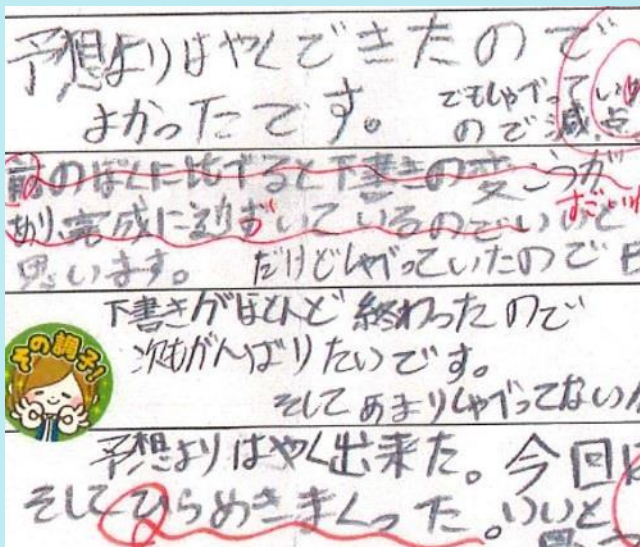 予想よりはやくできたので
よかったです。
でもしゃべって
ので減点
前のぼくに比べると下書きの変こうが
あり、完成に近ずいているのでいいと
思います。 だけどしゃべっていたので
下書きがほとんど終わったので
次もがんばりたいです。
そしてあまりしゃべってない
その調子!
予想よりはやく出来た。今回
そしてひらめきまくった。いいと